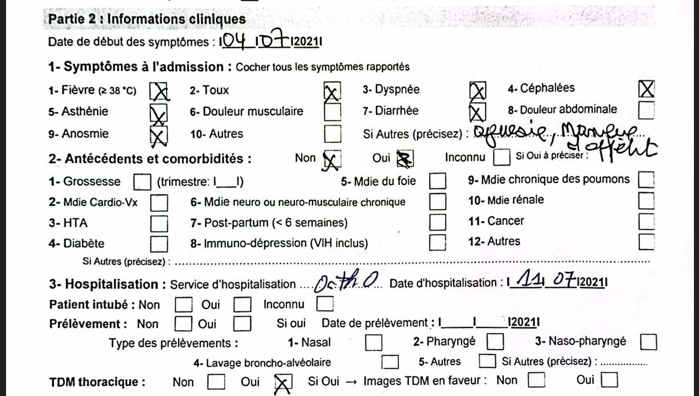 Partie 2 : Informations cliniques
Date de début des symptômes : |04|07|2021|
1- Symptômes à l'admission : Cocher tous les symptômes rapportés
1- Fièvre (≥ 38 °C) ☒ 2- Toux ☒ 3- Dyspnée ☒ 4- Céphalées ☒
5- Asthénie ☒ 6- Douleur musculaire ☐ 7- Diarrhée ☒ 8- Douleur abdominale ☐
9- Anosmie ☒ 10- Autres ☐ Si Autres (précisez) : aguesie, Manque
d'appétit
2- Antécédents et comorbidités : Non ☒ Oui Inconnu ☐ Si Oui à préciser :
1- Grossesse ☐ (trimestre: |___|) 5- Mdie du foie ☐ 9- Mdie chronique des poumons ☐
2- Mdie Cardio-Vx ☐ 6- Mdie neuro ou neuro-musculaire chronique ☐ 10- Mdie rénale ☐
3- HTA ☐ 7- Post-partum (< 6 semaines) ☐ 11- Cancer ☐
4- Diabète ☐ 8- Immuno-dépression (VIH inclus) ☐ 12- Autres ☐
Si Autres (précisez) :
3- Hospitalisation : Service d'hospitalisation Date d'hospitalisation : |11|07|2021|
Patient intubé : Non ☐ Oui ☐ Inconnu ☐
Prélèvement : Non ☐ Oui ☐ Si oui Date de prélèvement : |____|____|2021|
Type des prélèvements : 1- Nasal ☐ 2- Pharyngé ☐ 3- Naso-pharyngé ☐
4- Lavage broncho-alvéolaire ☐ 5- Autres ☐ Si Autres (précisez) :
TDM thoracique : Non ☐ Oui ☒ Si Oui → Images TDM en faveur : Non ☐ Oui ☐